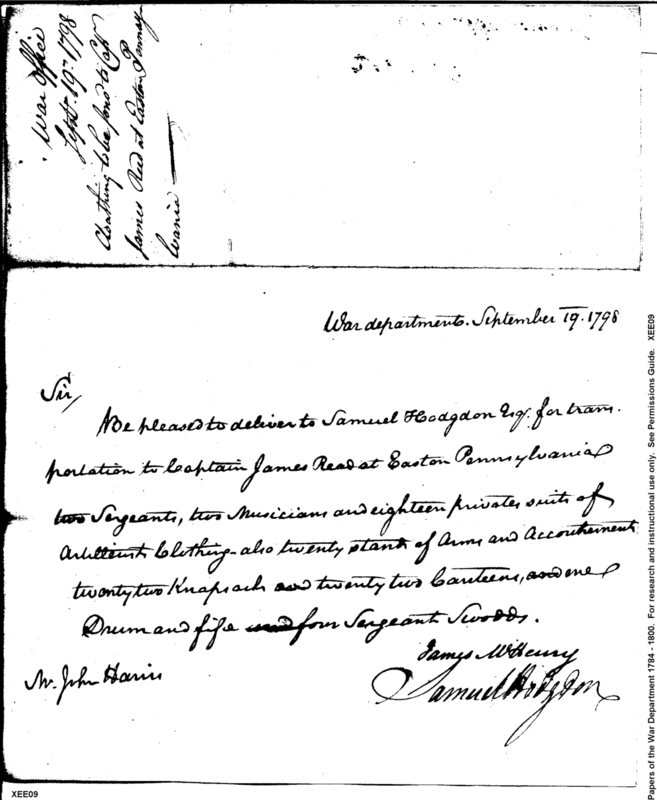 War Office
Sept. 19th 1798
Cloathing to be send to Capt
James Reed at Easton Pennsyl-
vania
War department. September 19. 1798
Sir,
Be pleased to deliver to Samuel Hodgdon Esq. for trans-
portation to Captain James Read at Easton Pennsylvania
two Sergeants, two Musicians and eighteen privates suits of
Artillerists Clothing - also twenty stands of Arms and Accoutrements
twenty two Knapsacks and twenty two Canteens, and one
Drum and fife and four Sergeants Swords.
James McHenry
Mr. John Harris
Samuel Hodgdon
Papers of the War Department 1784 - 1800. For research and instructional use only. See Permissions Guide. XEE09
XEE09